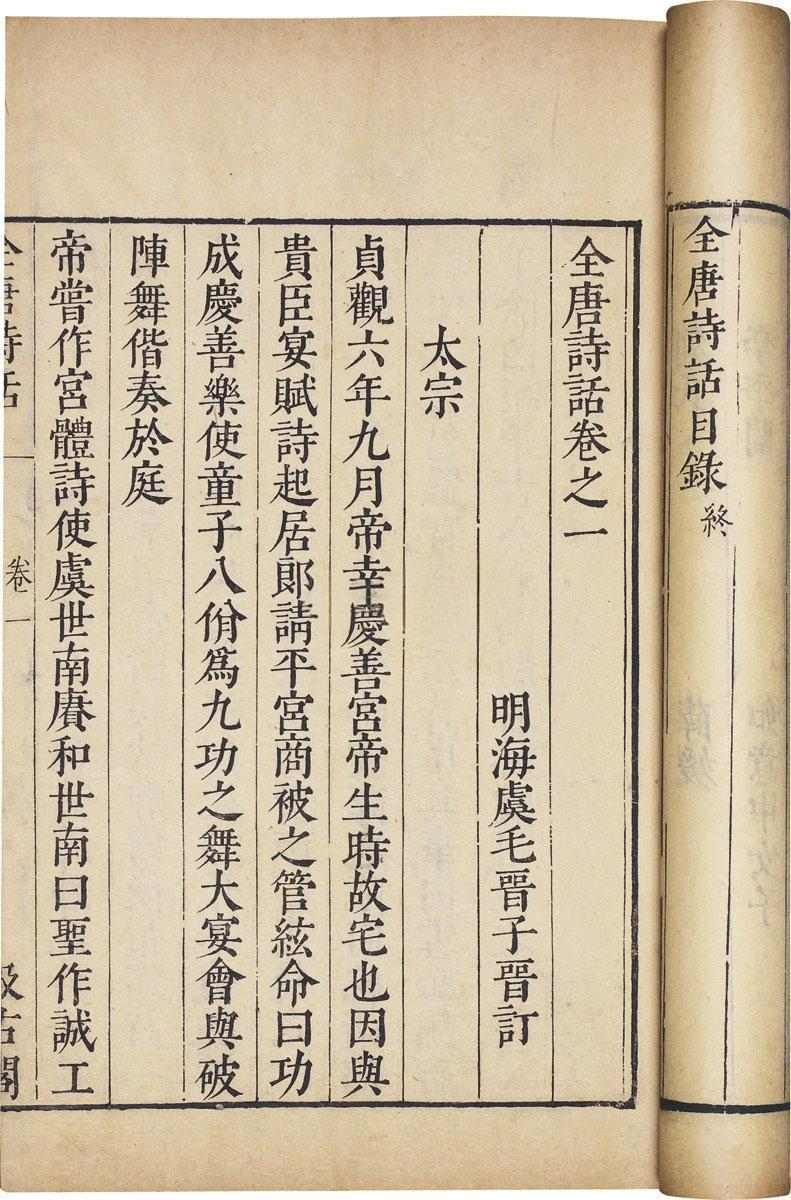 全唐詩話目錄終
全唐詩話卷之一
明海虞毛晉子晉訂
太宗
貞觀六年九月帝幸慶善宮帝生時故宅也因與
貴臣宴賦詩起居郎請平宮商被之管絃命曰功
成慶善樂使童子八佾爲九功之舞大宴會與破
陣舞偕奏於庭
帝嘗作宮體詩使虞世南賡和世南曰聖作誠工
全唐詩話 卷一 汲古閣